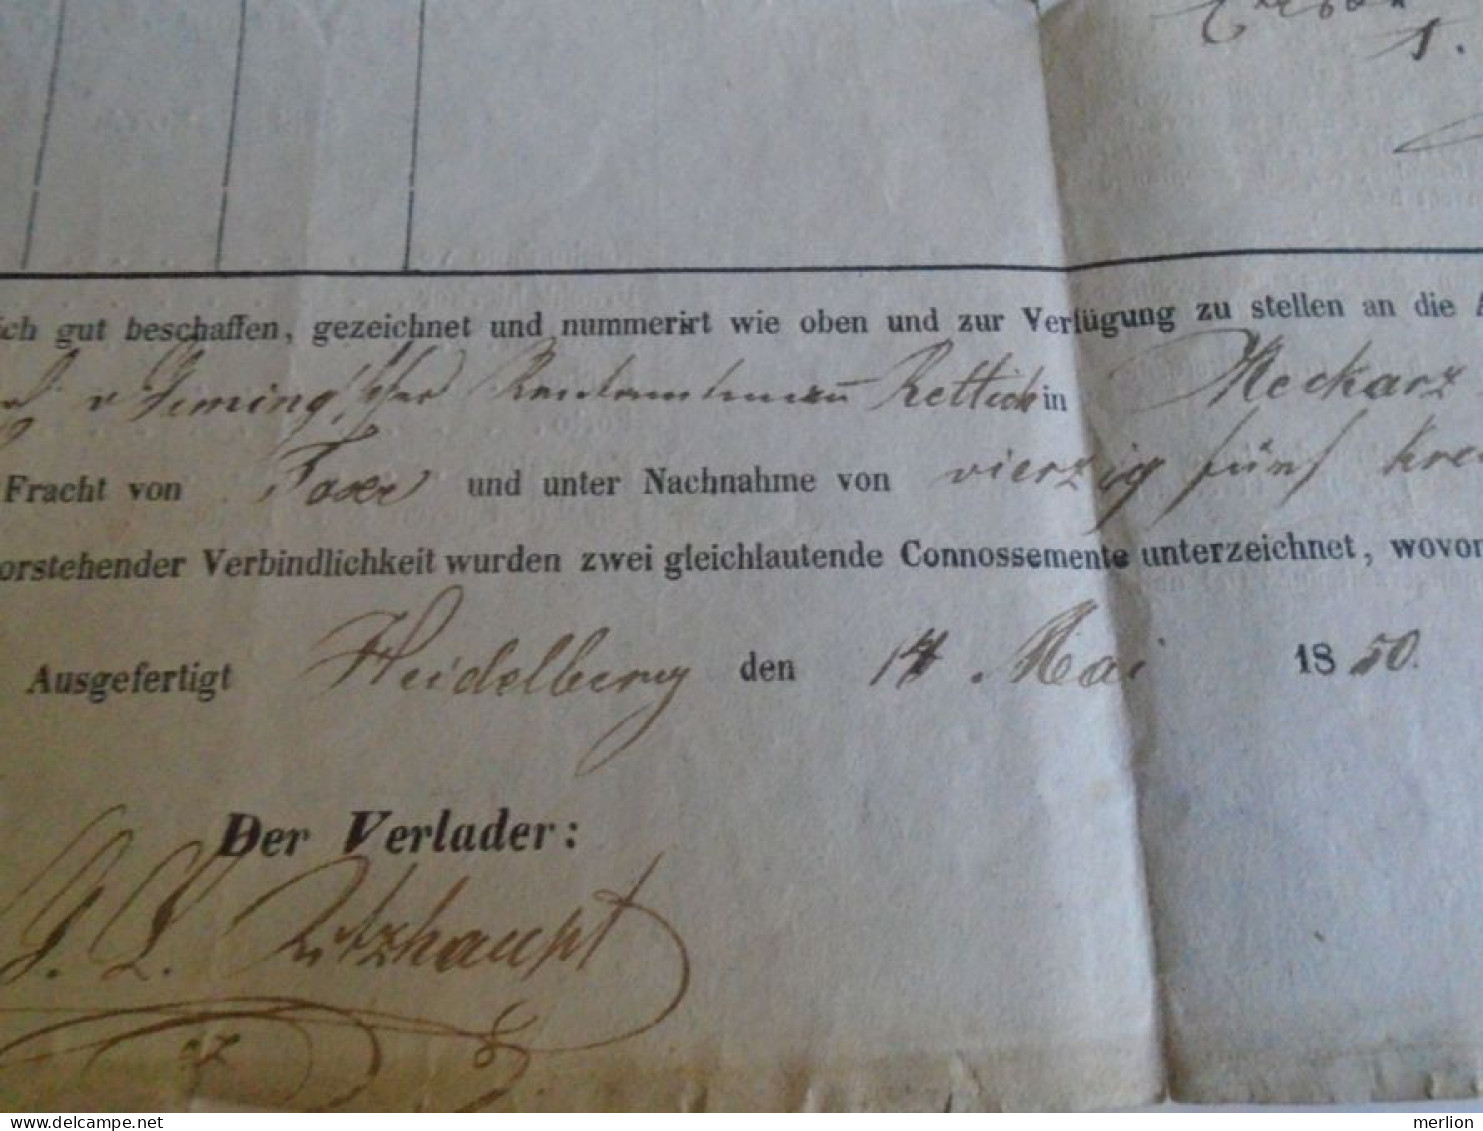 1.
ich gut beschaffen, gezeichnet und nummerirt wie oben und zur Verfügung zu stellen an die A
v Gemming'scher Rentamtmann Rettich in Neckarz
Fracht von Taxe und unter Nachnahme von vierzig fünf kreu
orstehender Verbindlichkeit wurden zwei gleichlautende Connossemente unterzeichnet, wovon
Ausgefertigt Heidelberg den 14. Mai 1850.
Der Verlader:
G. L. Ritzhaupt
merlion